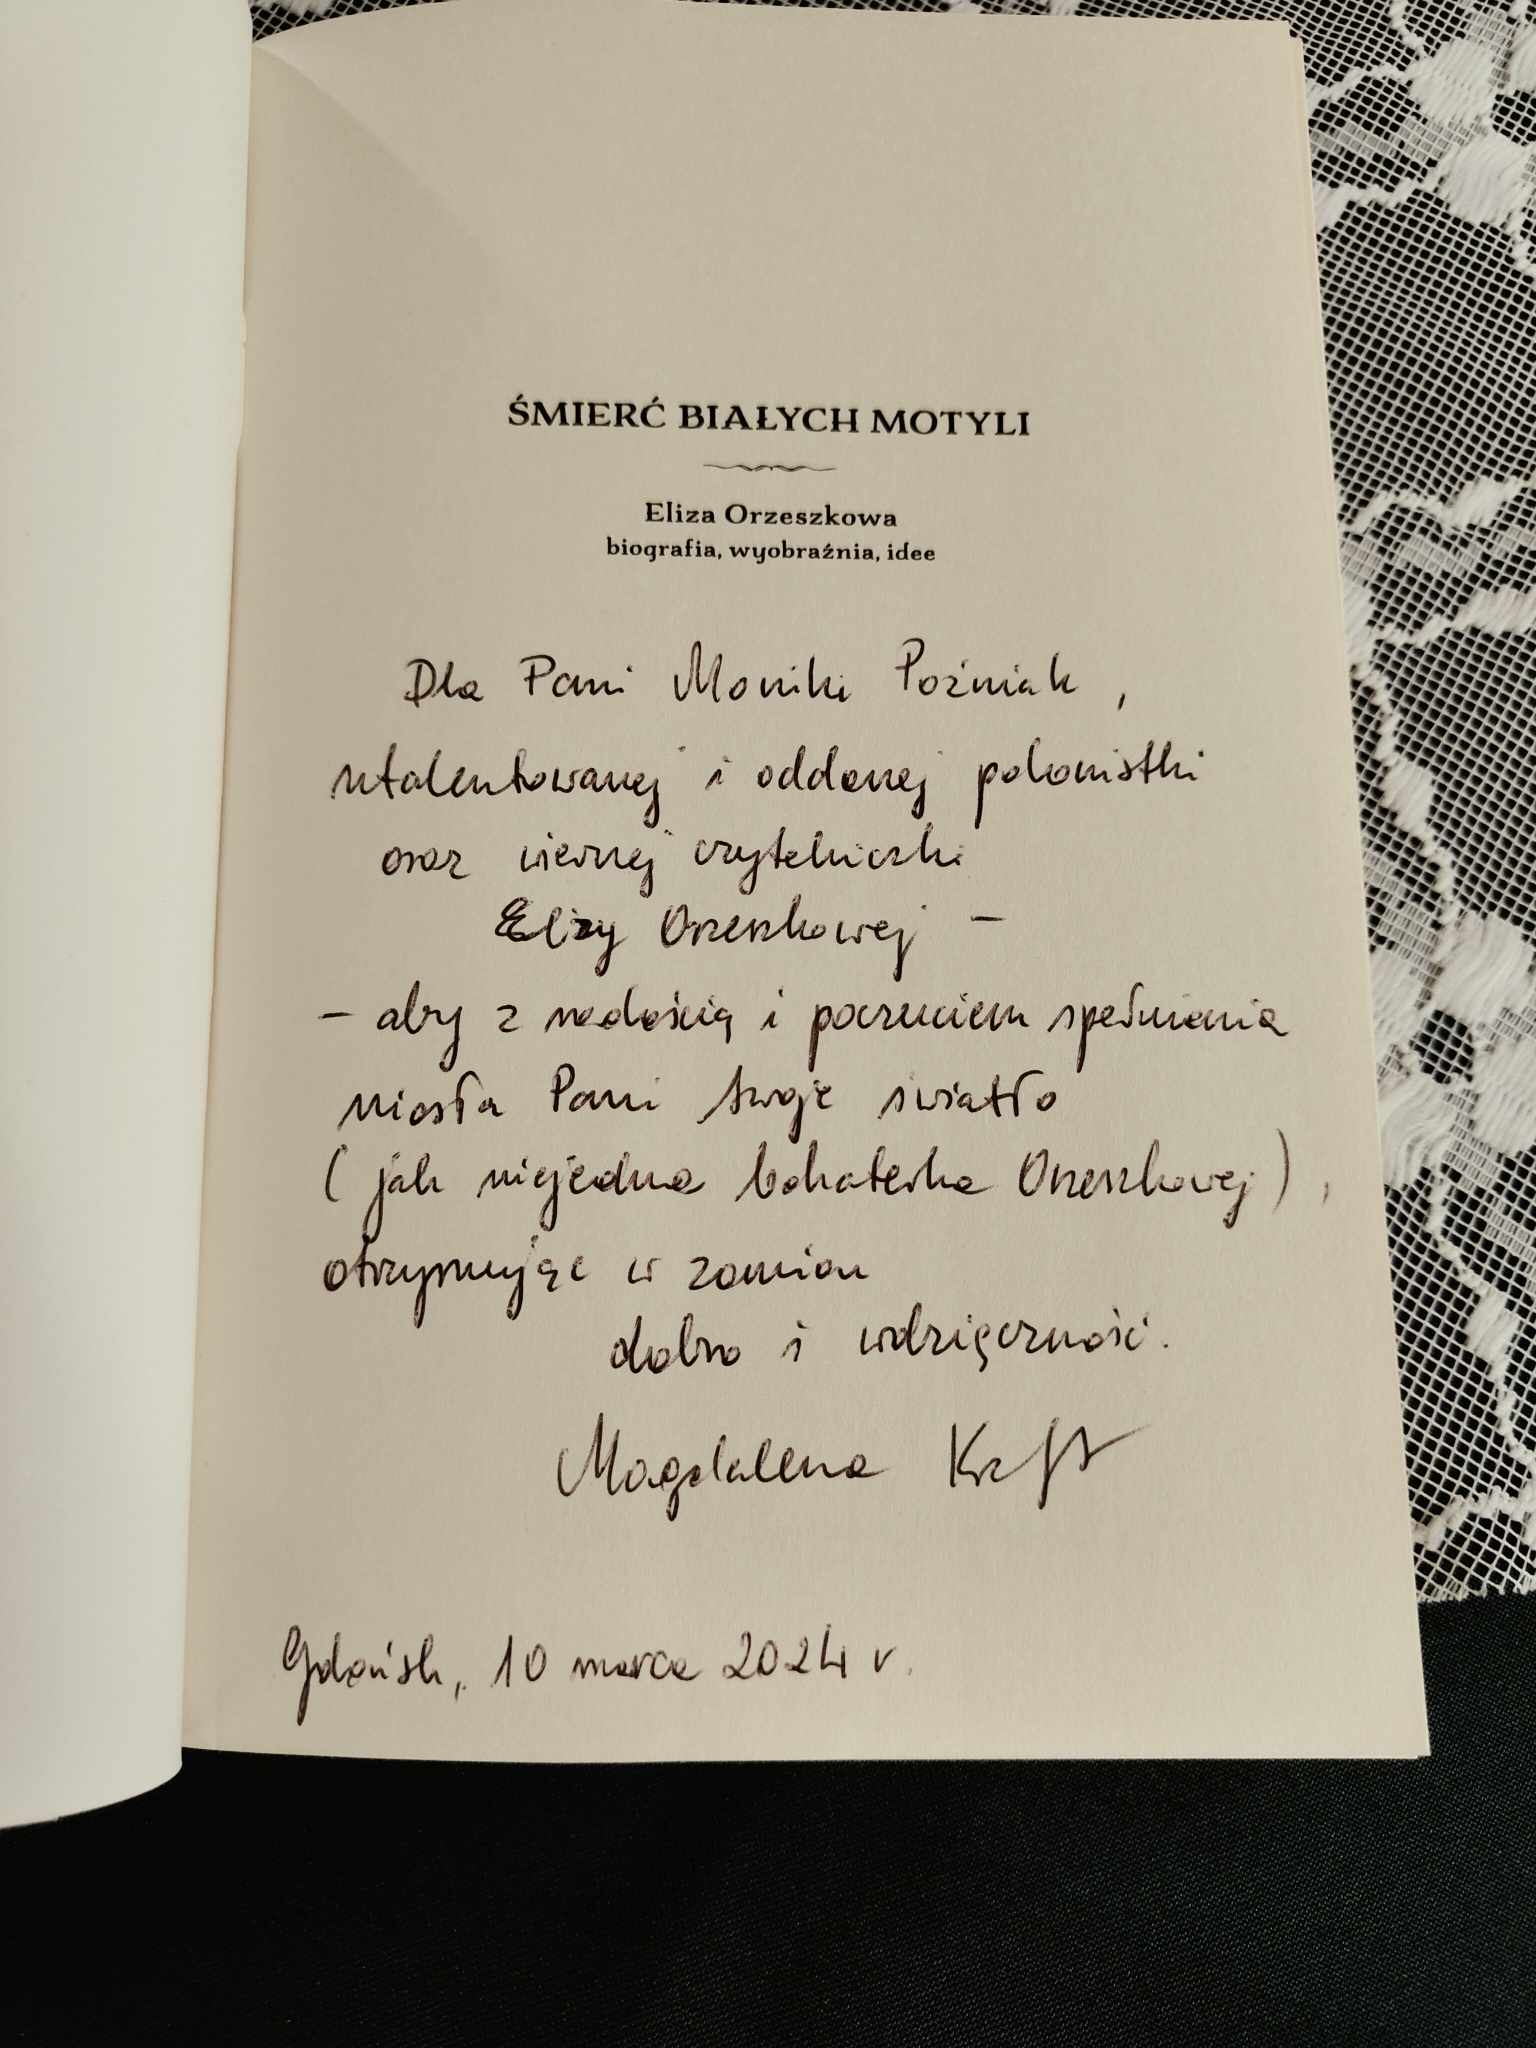 ŚMIERĆ BIAŁYCH MOTYLI
Eliza Orzeszkowa
biografia, wyobraźnia, idee
Dla Pani Moniki Poźniak,
utalentowanej i oddanej polonistki
oraz wiernej czytelniczki
Elizy Orzeszkowej –
– aby z radością i poczuciem spełniania
niosła Pani swoje światło
(jak niejedna bohaterka Orzeszkowej),
otrzymując w zamian
dobro i wdzięczność.
Magdalena
Gdańsk, 10 marca 2024 r.